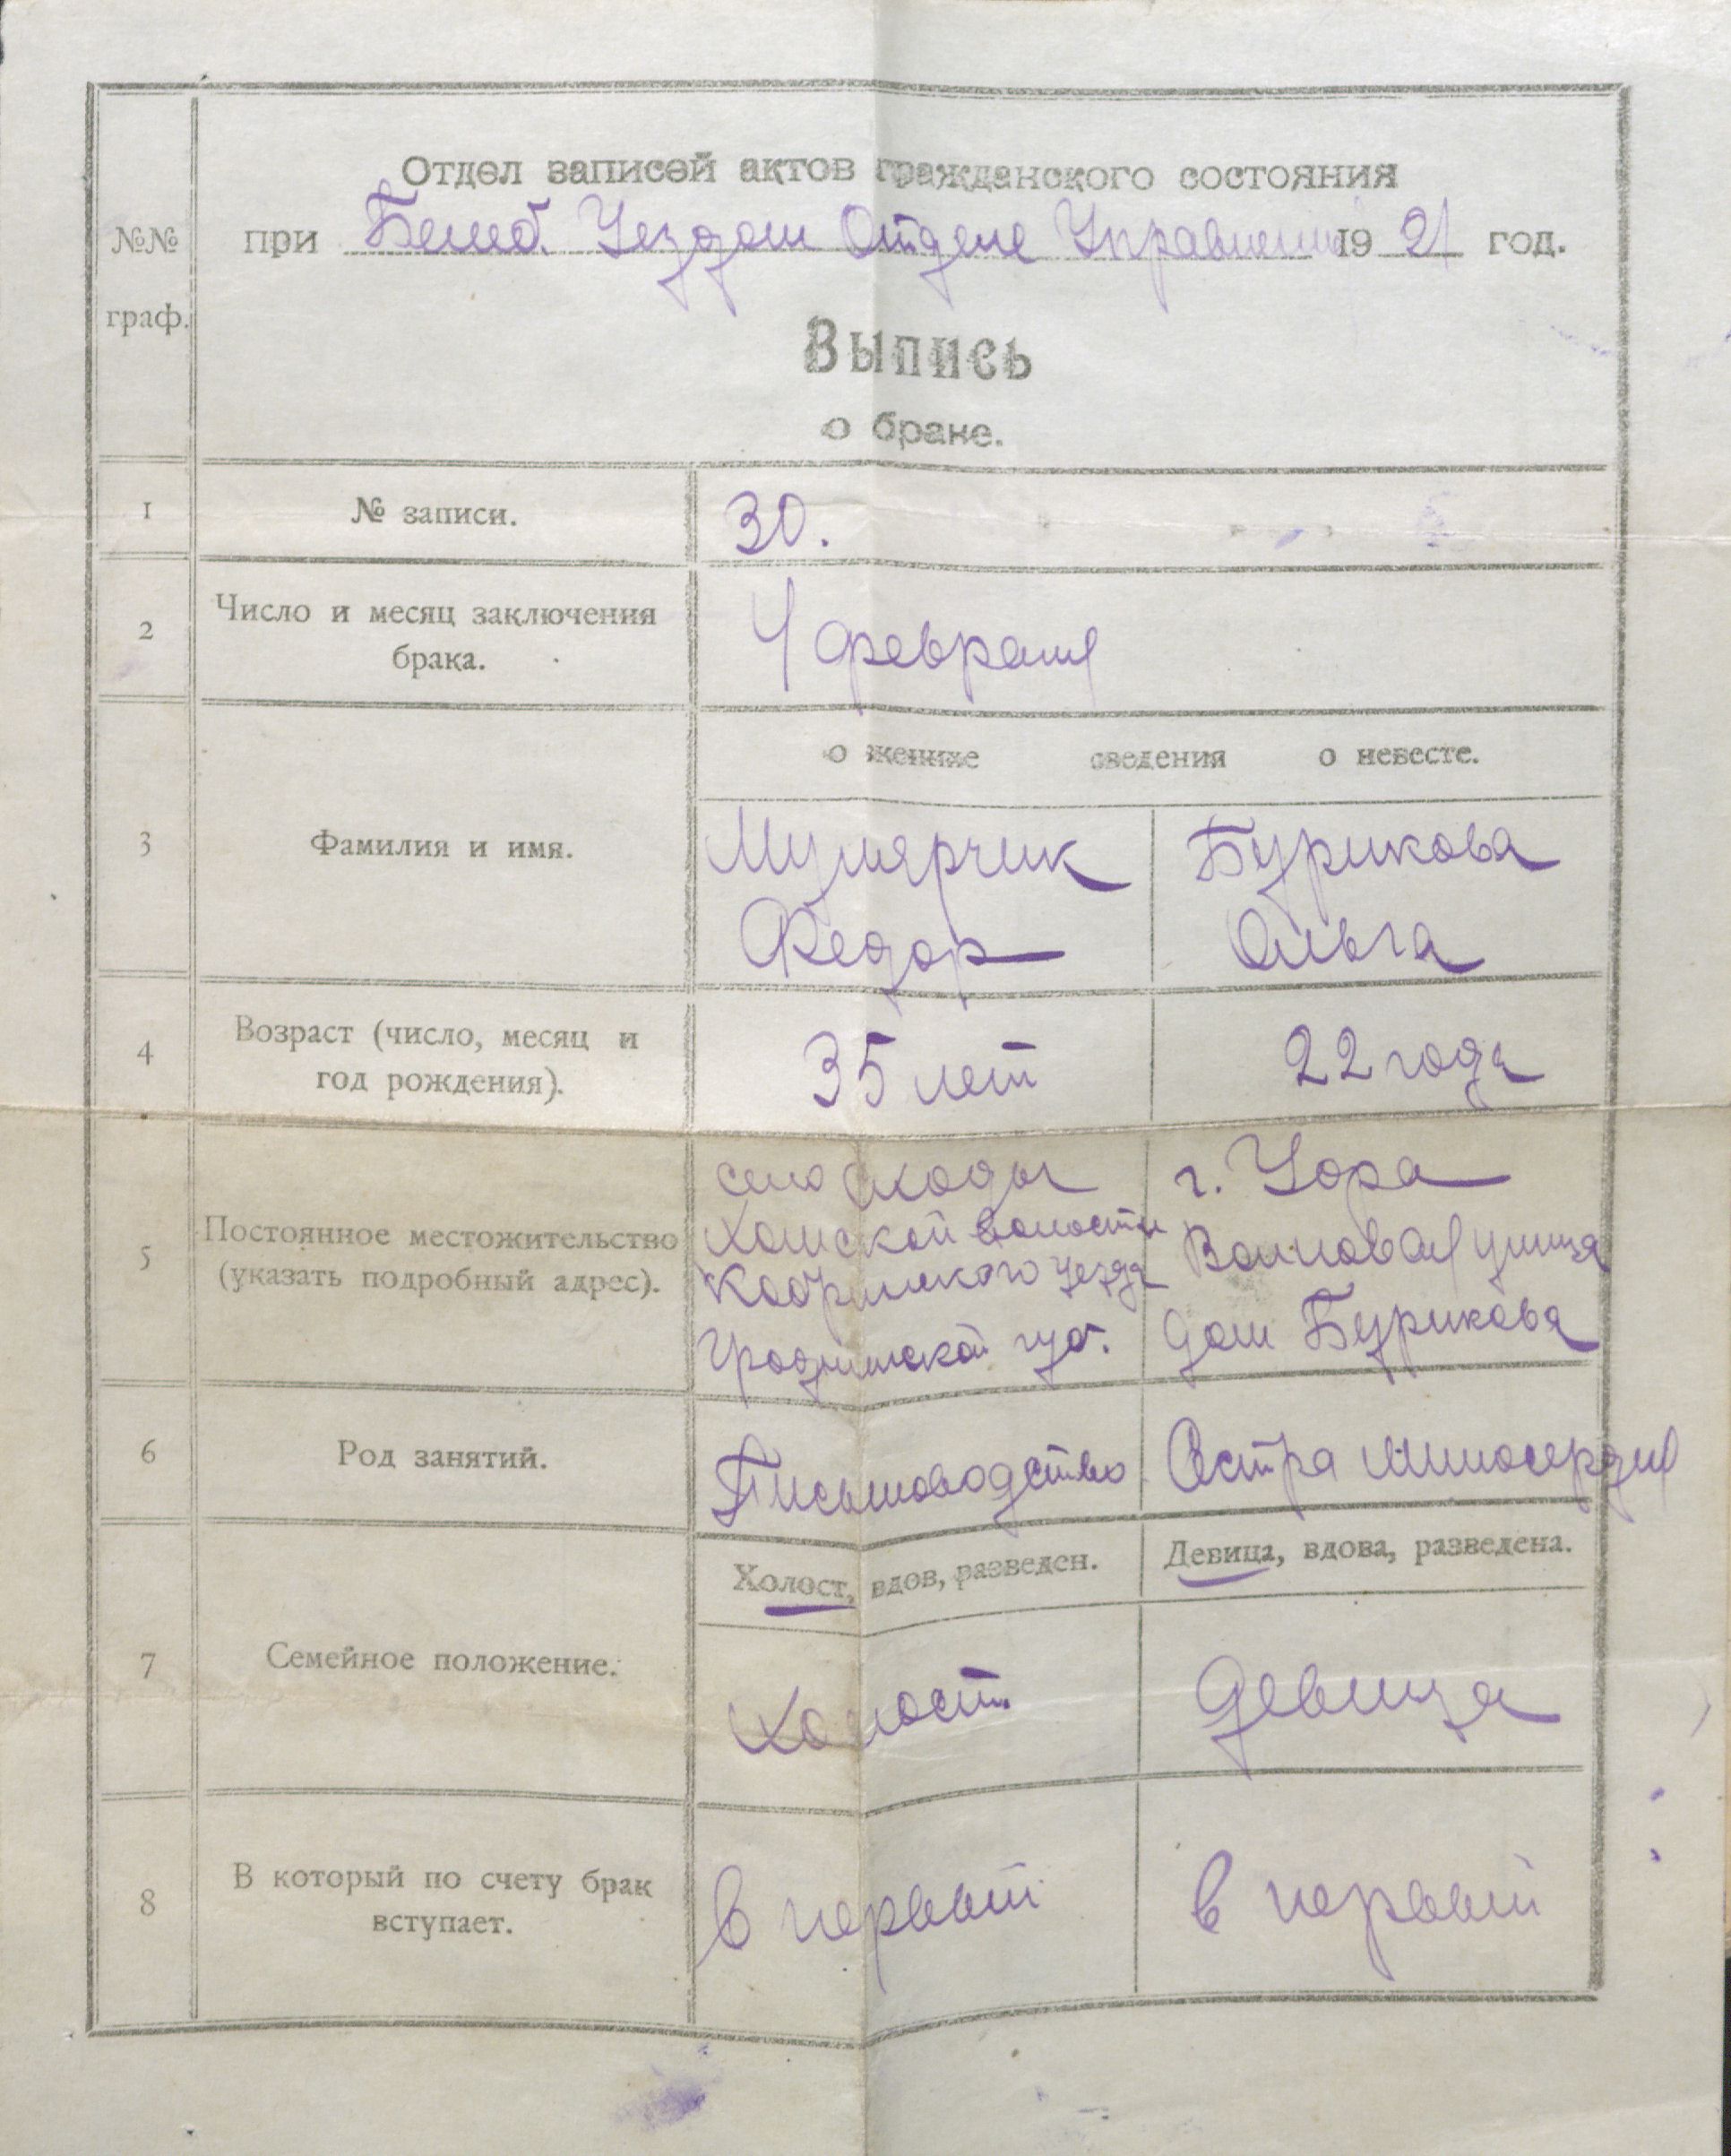 Отдел записей актов гражданского состояния
№№ граф.
при Белеб. Уездом Отделе Управлении 1921 год.
Выпись
о браке.
1 № записи. 30.
2 Число и месяц заключения брака. 4 февраля
о женихе сведения о невесте.
3 Фамилия и имя.
Мулярчик Бурикова
Федор Ольга
4 Возраст (число, месяц и
год рождения).
35 лет 22 года
5 Постоянное местожительство
(указать подробный адрес).
село г.
Хомской волости улица
Кобринского уезда дом Бурикова
Гродненской губ.
6 Род занятий. Письмоводство Сестра милосердия
Холост, вдов, разведен. Девица, вдова, разведена.
7 Семейное положение. Холост. Девица
8 В который по счету брак
вступает.
в первый в первый